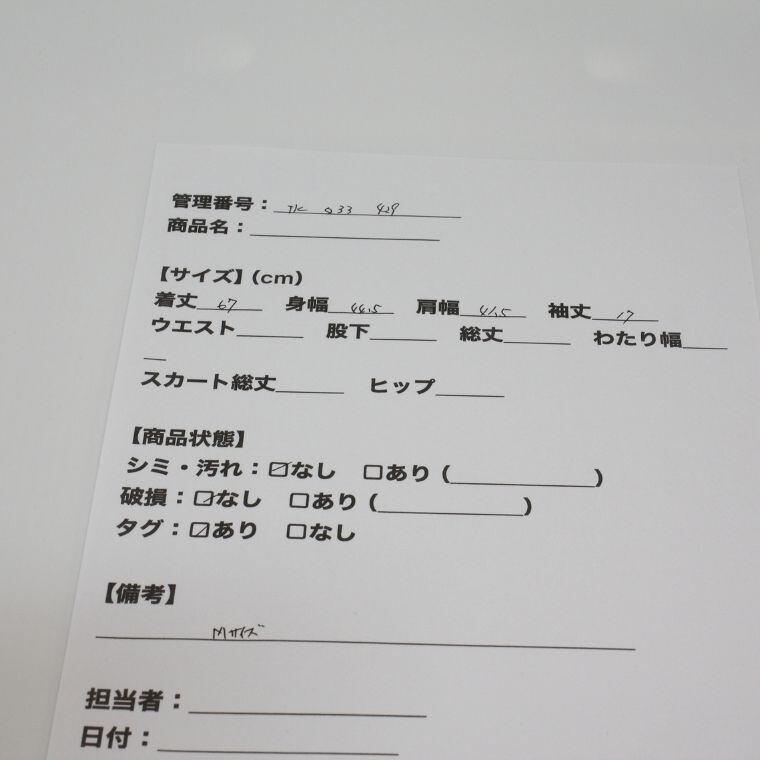 管理番号：TK 033 429
商品名：
【サイズ】(cm)
着丈 67 身幅 44.5 肩幅 41.5 袖丈 17
ウエスト 股下 総丈 わたり幅
スカート総丈 ヒップ
【商品状態】
シミ・汚れ：☑なし □あり ( )
破損：☑なし □あり ( )
タグ：☑あり □なし
【備考】
Mサイズ
担当者：
日付：